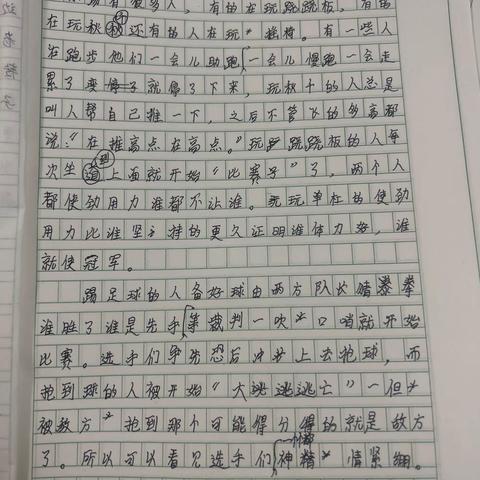 有很多人，有的在玩跷跷板，有的
在玩秋千还有的人在玩*摇椅。有一些人
在跑步他们一会儿助跑一会儿慢跑一会走
累了变停子就停了下来，玩秋千的人总是
叫人帮自己推一下，之后不管飞的多高都
说：“在推高点在高点。”玩跷跷板的人每
次坐到上面就开始“比赛子”了，两个人
都使劲用力谁都不让谁。玩单杠的使劲
用力比谁坚持的更久证明谁体力好，谁
就使冠军。
踢足球的人备好球由两方队长猜拳
谁胜了谁是先手等裁判一吹*口哨就开始
比赛。选手们争先恐后冲上去抢球，而
抢到球的人被开始“大逃逃逃亡”一但*
被敌方*抢到那个可能得分得的就是敌方
了。所以可以看见选手们神精*情紧绷。